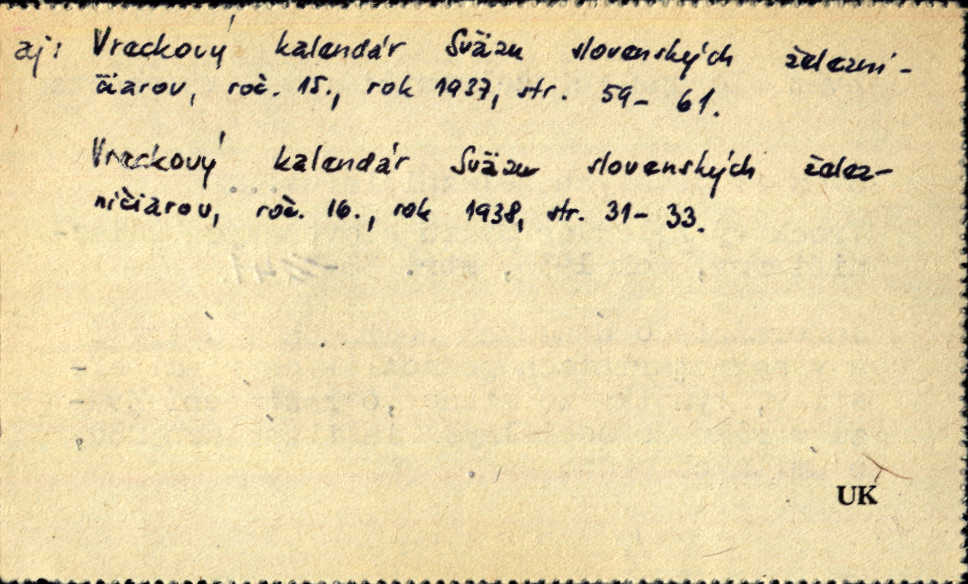 aj: Vreckový kalendár Sväzu slovenských železni-
čiarov, roč. 15., rok 1937, str. 59-61.
Vreckový kalendár Sväzu slovenských želez-
ničiarov, roč. 16., rok 1938, str. 31-33.
UK